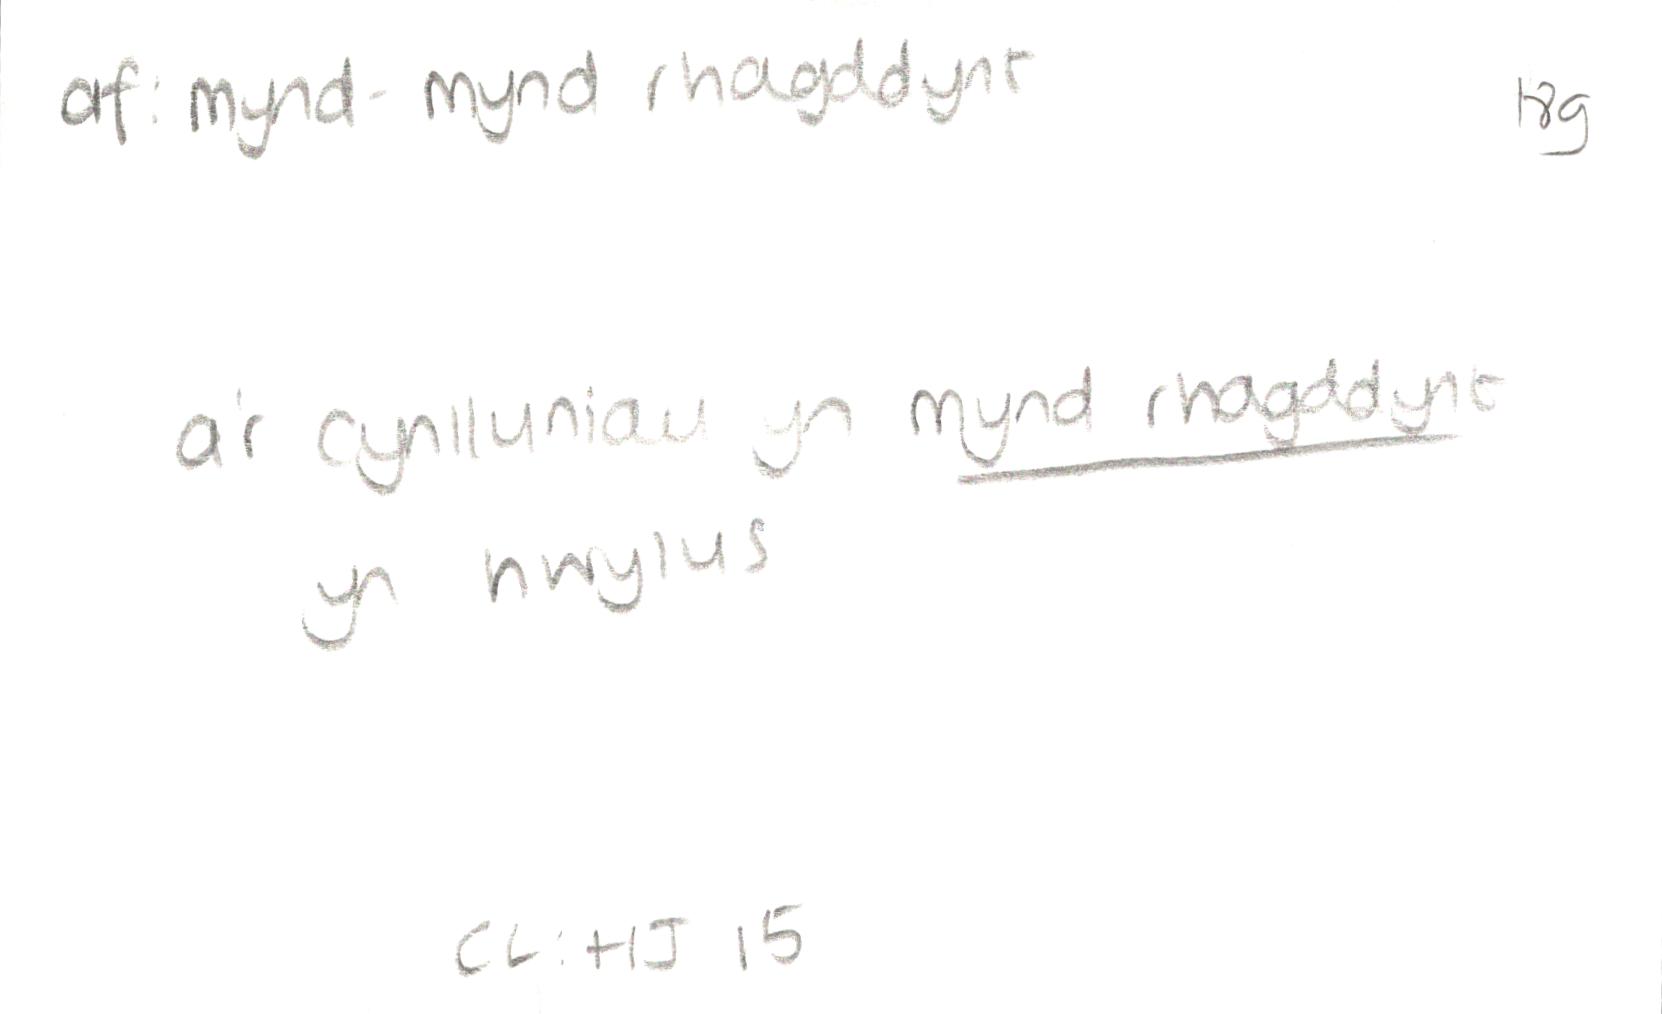 af: mynd - mynd rhagddynt
a'r cynlluniau yn mynd rhagddynt
yn hwylus
CL: HJ 15